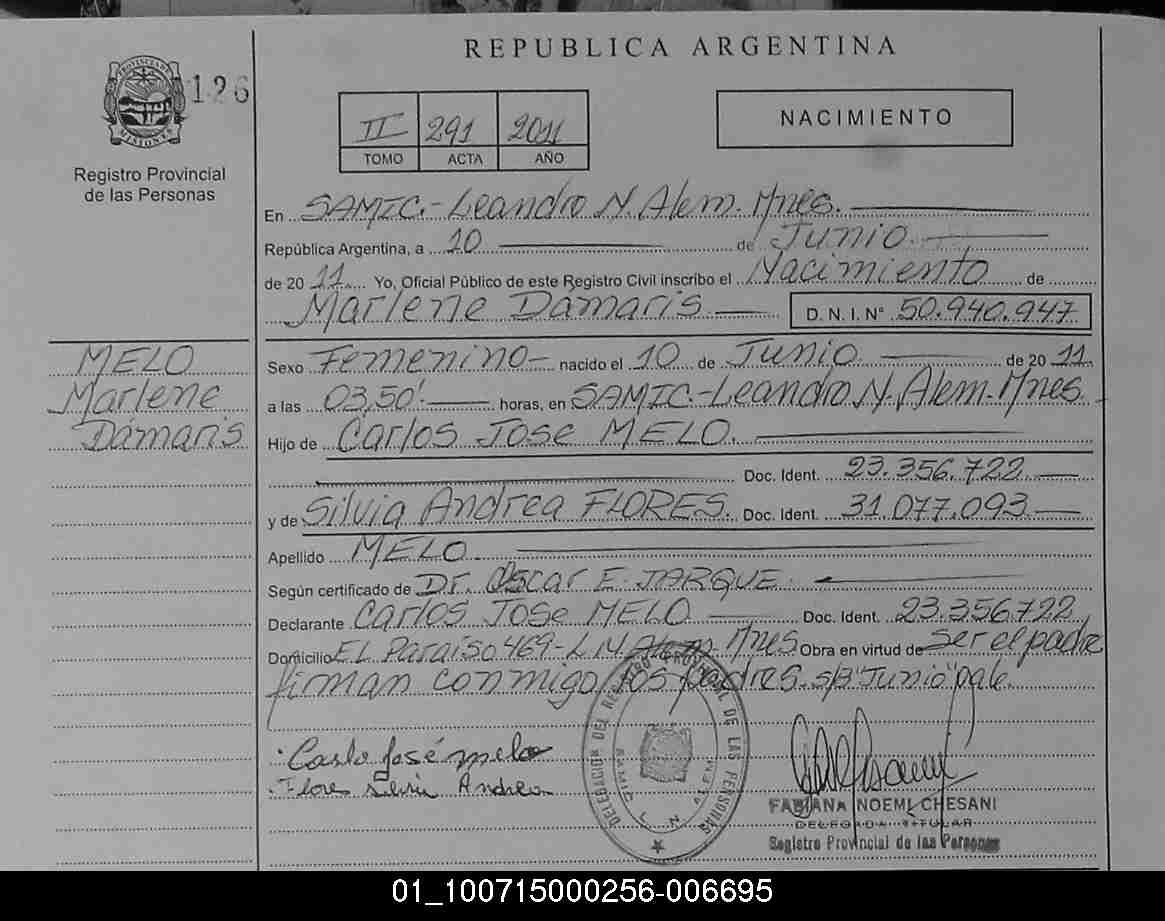 REPUBLICA ARGENTINA
PROVINCIA DE MISIONES
126
Registro Provincial
de las Personas
II 291 2011
TOMO ACTA AÑO
NACIMIENTO
En SAMIC.-Leandro N. Alem. Mnes.
República Argentina, a 10 de Junio
de 2011 Yo, Oficial Público de este Registro Civil inscribo el Nacimiento de
Marlene Damaris D.N.I. N° 50.940.947
MELO
Marlene
Damaris
Sexo Femenino nacido el 10 de Junio de 2011.
a las 03,50'. horas, en SAMIC.-Leandro N. Alem. Mnes.
Hijo de Carlos Jose MELO.
Doc. Ident. 23.356.722
y de Silvia Andrea FLORES. Doc. Ident. 31.077.093
Apellido MELO
Según certificado de Dr. Oscar E. JARQUE.
Declarante Carlos Jose MELO Doc. Ident. 23.356.722
Domicilio EL Paraiso 469-L N Alem. Mnes Obra en virtud de ser el padre
firman conmigo los padres. s/B "Junio" vale.
Carlo José melo
Flores Silvia Andrea
DELEGACION DEL REGISTRO PROVINCIAL DE LAS PERSONAS
SAMIC L. N. ALEM
FABIANA NOEMI CHESANI
DELEGADA TITULAR
Registro Provincial de las Personas
01_100715000256-006695